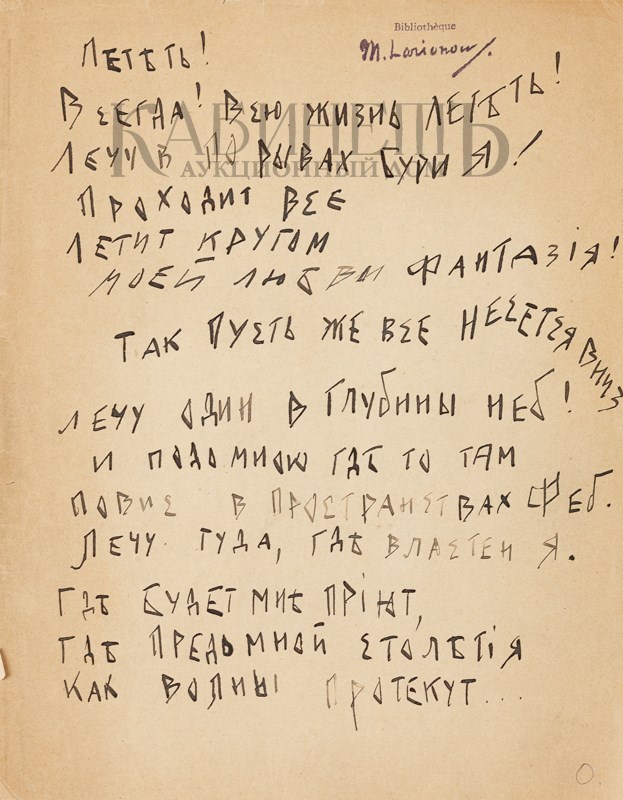 Bibliothèque
M. Larionow.
Летѣть!
Всегда! Всю жизнь летѣть!
Лечу в порывах бури я!
Проходит все
Летит кругом
моей любви фантазія!
Так пусть же все несется вниз
Лечу один в глубины неб!
и подо мною гдѣ то там
повис в пространствах Феб.
Лечу туда, гдѣ властен я.
Гдѣ будет мнѣ пріют,
гдѣ предь мной столѣтія
как волны протекут...
КАБИНЕТЪ
АУКЦИОННЫЙ ДОМ